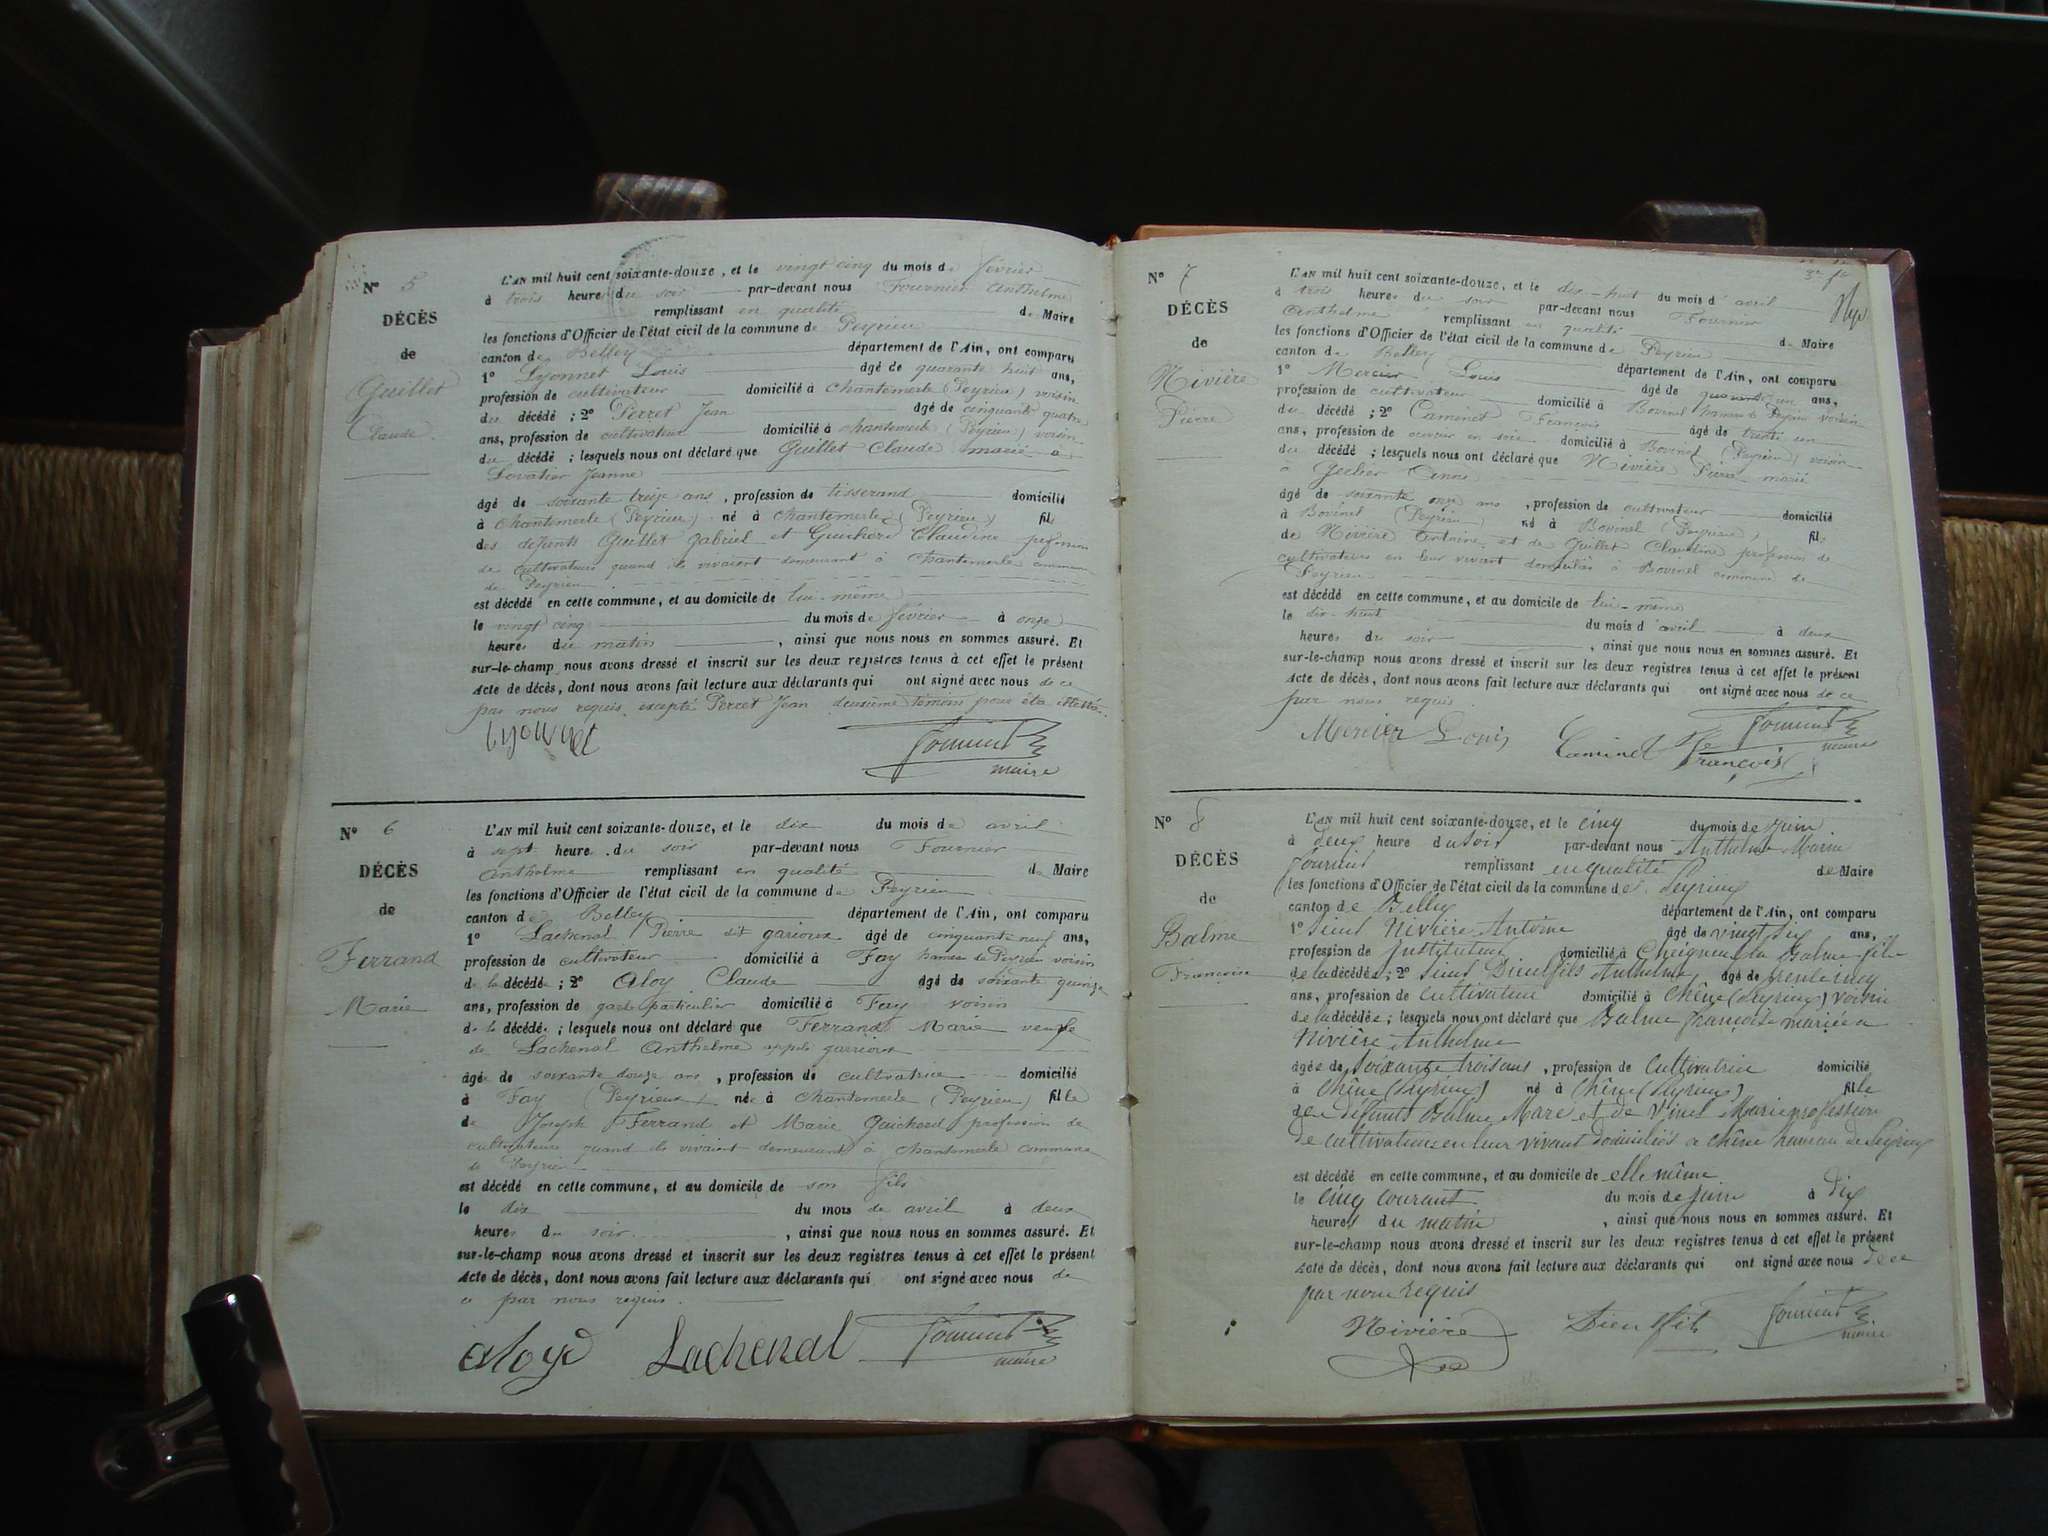 N° 5
DÉCÈS
de
Guillet
Claude
L'AN mil huit cent soixante-douze, et le vingt cinq du mois de février
à trois heures du soir par-devant nous Fournier Anthelme
remplissant en qualité de Maire
les fonctions d'Officier de l'état civil de la commune de Peyrieu
canton de Belley département de l'Ain, ont comparu
1° Lyonnet Louis âgé de quarante huit ans,
profession de cultivateur domicilié à Chantemerle (Peyrieu) voisin
du décédé ; 2° Perret Jean âgé de cinquante quatre
ans, profession de cultivateur domicilié à Chantemerle (Peyrieu) voisin
du décédé ; lesquels nous ont déclaré que Guillet Claude marié à
Lovatier Jeanne
âgé de soixante treize ans, profession de tisserand domicilié
à Chantemerle (Peyrieu) né à Chantemerle (Peyrieu) fils
des défunts Guillet Gabriel et Guicherd Claudine profession
de cultivateurs quand ils vivaient demeurant à Chantemerle commune
de Peyrieu
est décédé en cette commune, et au domicile de lui-même
le vingt cinq du mois de février à onze
heures du matin, ainsi que nous nous en sommes assuré. Et
sur-le-champ nous avons dressé et inscrit sur les deux registres tenus à cet effet le présent
Acte de décès, dont nous avons fait lecture aux déclarants qui ont signé avec nous de ce
par nous requis excepté Perret Jean deuxième témoin pour être illettré.
Lyonnet
Fournier
maire
N° 6
DÉCÈS
de
Ferrand
Marie
L'AN mil huit cent soixante-douze, et le dix du mois de avril
à sept heures du soir par-devant nous Fournier
Anthelme remplissant en qualité de Maire
les fonctions d'Officier de l'état civil de la commune de Peyrieu
canton de Belley département de l'Ain, ont comparu
1° Lachenal Pierre dit garioux âgé de cinquante neuf ans,
profession de cultivateur domicilié à Fay hameau de Peyrieu voisin
de la décédée ; 2° Aloy Claude âgé de soixante quinze
ans, profession de garde particulier domicilié à Fay voisin
de la décédée ; lesquels nous ont déclaré que Ferrand Marie veuve
de Lachenal Anthelme appelé garrioux
âgée de soixante douze ans, profession de cultivatrice domicilié
à Fay (Peyrieu) née à Chantemerle (Peyrieu) fille
de Joseph Ferrand et Marie Guicherd profession de
cultivateurs quand ils vivaient demeurant à Chantemerle commune
de Peyrieu
est décédé en cette commune, et au domicile de son fils
le dix du mois de avril à deux
heures du soir, ainsi que nous nous en sommes assuré. Et
sur-le-champ nous avons dressé et inscrit sur les deux registres tenus à cet effet le présent
Acte de décès, dont nous avons fait lecture aux déclarants qui ont signé avec nous de
ce par nous requis.
Aloye Lachenal Fournier
maire
N° 7
DÉCÈS
de
Nivière
Pierre
L'AN mil huit cent soixante-douze, et le dix-huit du mois d'avril
à trois heures du soir par-devant nous Fournier
Anthelme remplissant en qualité de Maire
les fonctions d'Officier de l'état civil de la commune de Peyrieu
canton de Belley département de l'Ain, ont comparu
1° Mercier Louis âgé de quarante un ans,
profession de cultivateur domicilié à Bovinel hameau de Peyrieu voisin
du décédé ; 2° Caminet François âgé de trente un
ans, profession de ouvrier en soie domicilié à Bovinel (Peyrieu) voisin
du décédé ; lesquels nous ont déclaré que Nivière Pierre marié
à
âgé de soixante onze ans, profession de cultivateur domicilié
à Bovinel (Peyrieu) né à Bovinel (Peyrieu) fils
de Nivière Antoine et de Guillet Claudine profession de
cultivateurs en leur vivant domiciliés à Bovinel commune de
Peyrieu
est décédé en cette commune, et au domicile de lui-même
le dix-huit du mois d'avril à deux
heures du soir, ainsi que nous nous en sommes assuré. Et
sur-le-champ nous avons dressé et inscrit sur les deux registres tenus à cet effet le présent
Acte de décès, dont nous avons fait lecture aux déclarants qui ont signé avec nous de ce
par nous requis
Mercier Louis Caminet François Fournier
maire
N° 8
DÉCÈS
de
Balme
Françoise
L'AN mil huit cent soixante-douze, et le cinq du mois de juin
à deux heure du soir par-devant nous Anthelme Marin
Fournier remplissant en qualité de Maire
les fonctions d'Officier de l'état civil de la commune de Peyrieu
canton de Belley département de l'Ain, ont comparu
1° Sieur Nivière Antoine âgé de vingt six ans,
profession de Instituteur domicilié à Cheignieu la Balme fils
de la décédée ; 2° Sieur Dieufils Anthelme âgé de trente cinq
ans, profession de cultivateur domicilié à Chêne (Peyrieu) voisin
de la décédée ; lesquels nous ont déclaré que Balme françoise mariée a
Nivière Anthelme
âgée de soixante trois ans, profession de Cultivatrice domicilié
à Chêne (Peyrieu) né à Chêne (Peyrieu) fille
de défunts Balme Marc et de Vinet Marie profession
de cultivateurs en leur vivant domiciliés a Chêne hameau de Peyrieu
est décédé en cette commune, et au domicile de elle même
le cinq courant du mois de juin à dix
heures du matin, ainsi que nous nous en sommes assuré. Et
sur-le-champ nous avons dressé et inscrit sur les deux registres tenus à cet effet le présent
Acte de décès, dont nous avons fait lecture aux déclarants qui ont signé avec nous de ce
par nous requis
Nivière Dieufils Fournier
maire